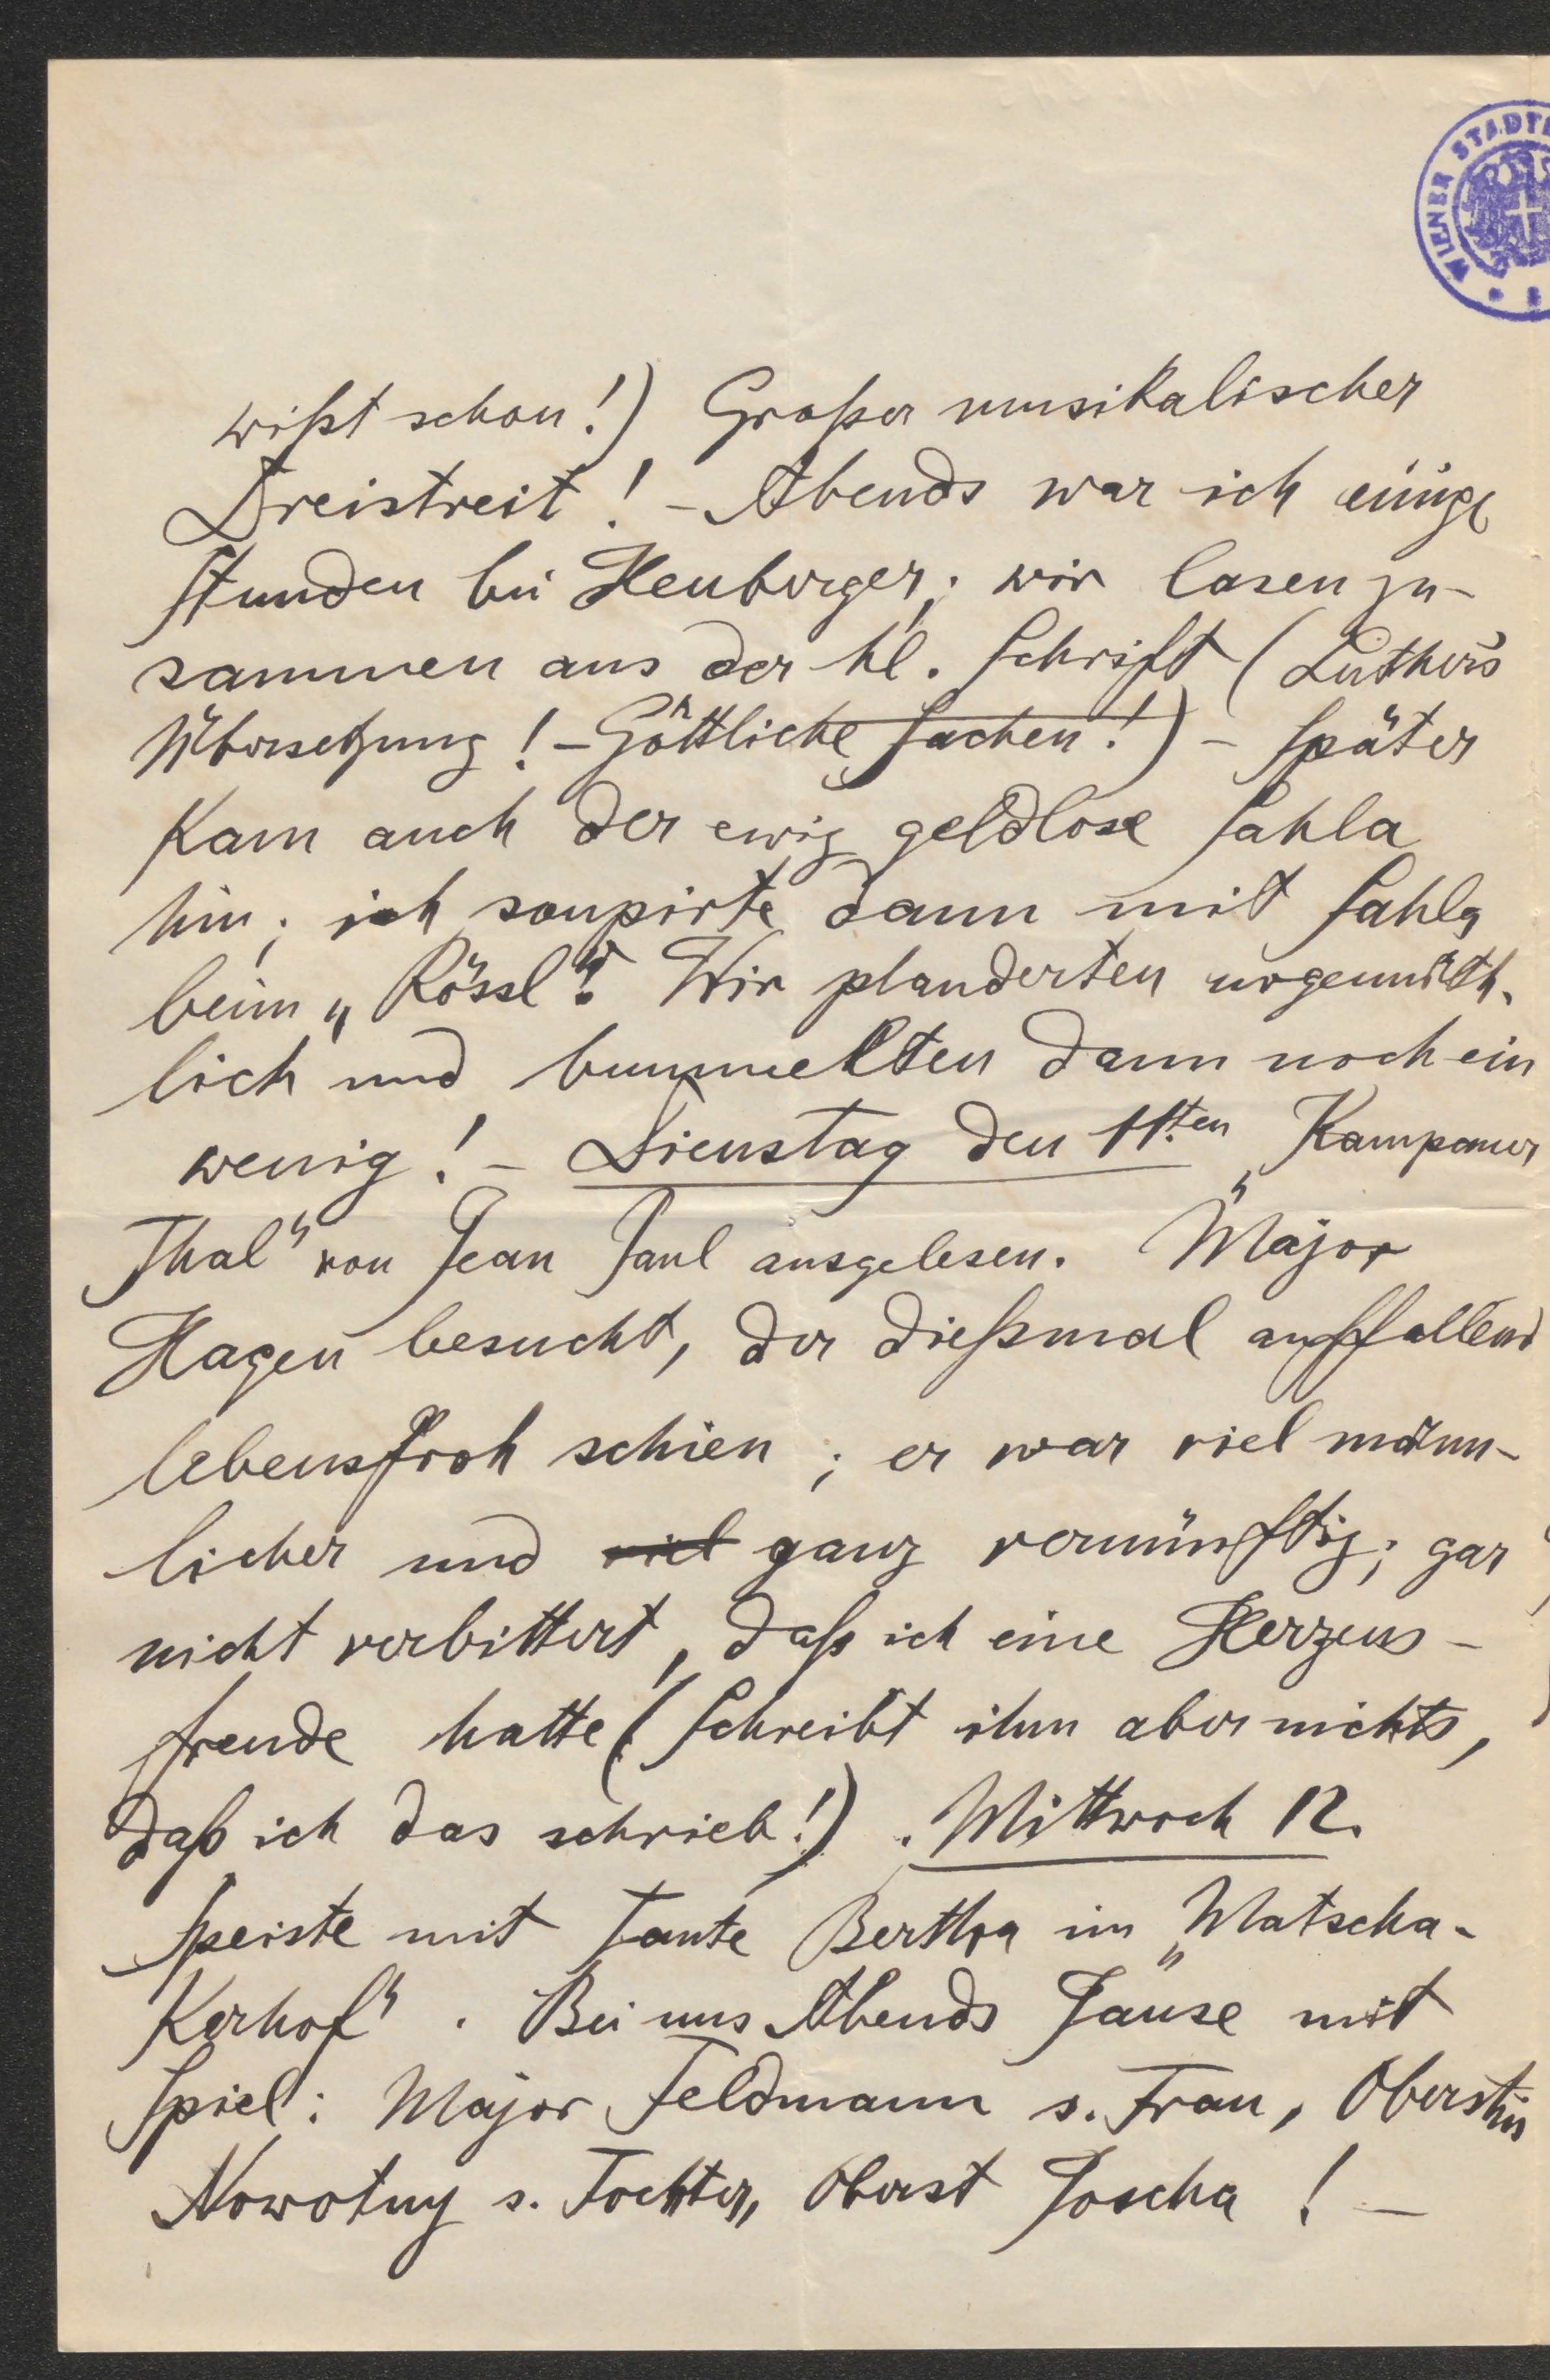 WIENER STADT
wißt schon!) Großer musikalischer
Dreistreit! – Abends war ich einige
Stunden bei Heuberger; wir lasen zu-
sammen aus der hl. Schrift (Luther's
Übersetzung! – Göttliche Sachen!) – Später
kam auch der ewig geldlose Sahla
hin; ich soupirte dann mit Sahla
beim „Rössl“. Wir plauderten urgemüth-
lich und bummelten dann noch ein
wenig! – Dienstag den 11ten „Kampaner
Thal“ von Jean Paul ausgelesen. Major
Hagen besucht, der dießmal auffallend
lebensfroh schien; er war viel männ-
licher und viel ganz vernünftig; gar
nicht verbittert, daß ich eine Herzens-
freude hatte (Schreibt ihm aber nichts,
daß ich das schrieb!). Mittwoch 12.
Speiste mit Tante Bertha im „Matscha-
kerhof“. Bei uns Abends Jause mit
Spiel: Major Feldmann s. Frau, Oberstin
Nowotny s. Tochter, Oberst Joscha! –